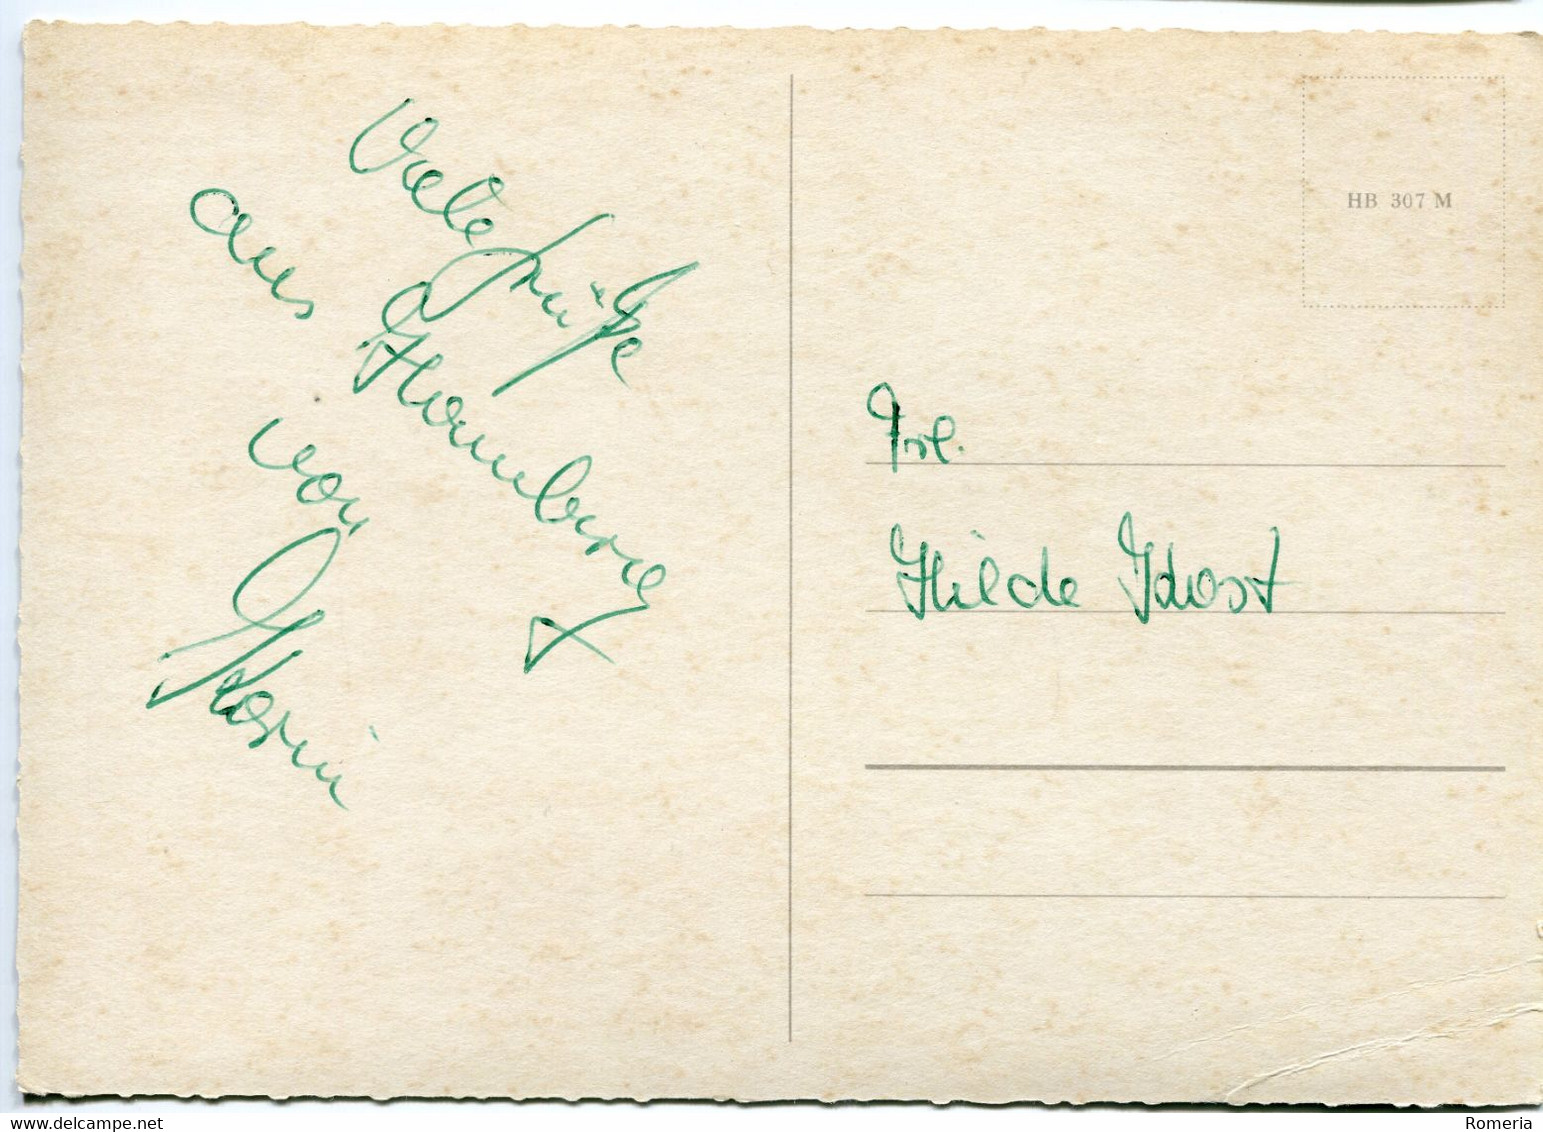 Viele Grüße
aus Hamburg
von
Karin
HB 307 M
Frl.
Hilde
www.delcampe.net
Romeria